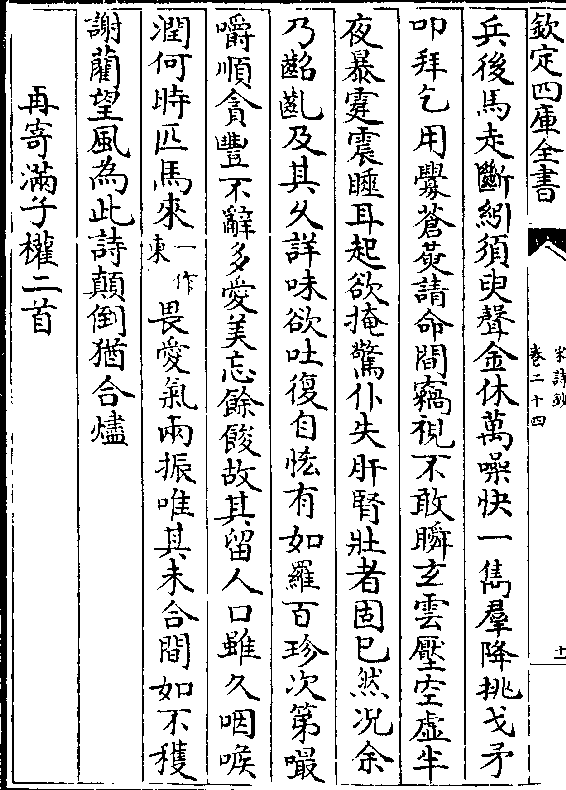 欽定四庫全書
宋詩鈔
卷二十四
十一
兵後馬走斷紖須臾聲金休萬噪快一雋羣降挑戈矛
叩拜乞用釁蒼黃請命間竊視不敢瞬玄雲壓空虛半
夜暴霆震睡耳起欲掩驚仆失肝腎壯者固已然况余
乃齠齔及其久詳味欲吐復自恡有如羅百珍次第嘬
嚼順貪豐不辭多愛美忘餘餕故其留人口雖久咽喉
潤何時匹馬來一作東畏愛氣兩振唯其未合間如不穫
謝藺望風為此詩顛倒猶合燼
再寄滿子權二首